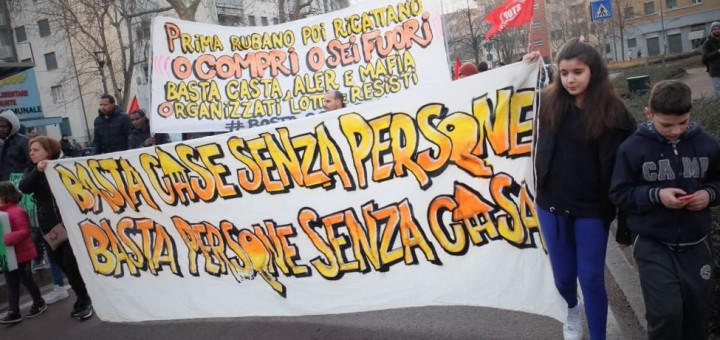 PRIMA RUBANO POI RICATTANO
O COMPRI O SEI FUORI
BASTA CASTA, ALER E MAFIA
ORGANIZZATI LOTTA RESISTI
BASTA CASE SENZA PERSONE
BASTA PERSONE SENZA CASA
CAMP